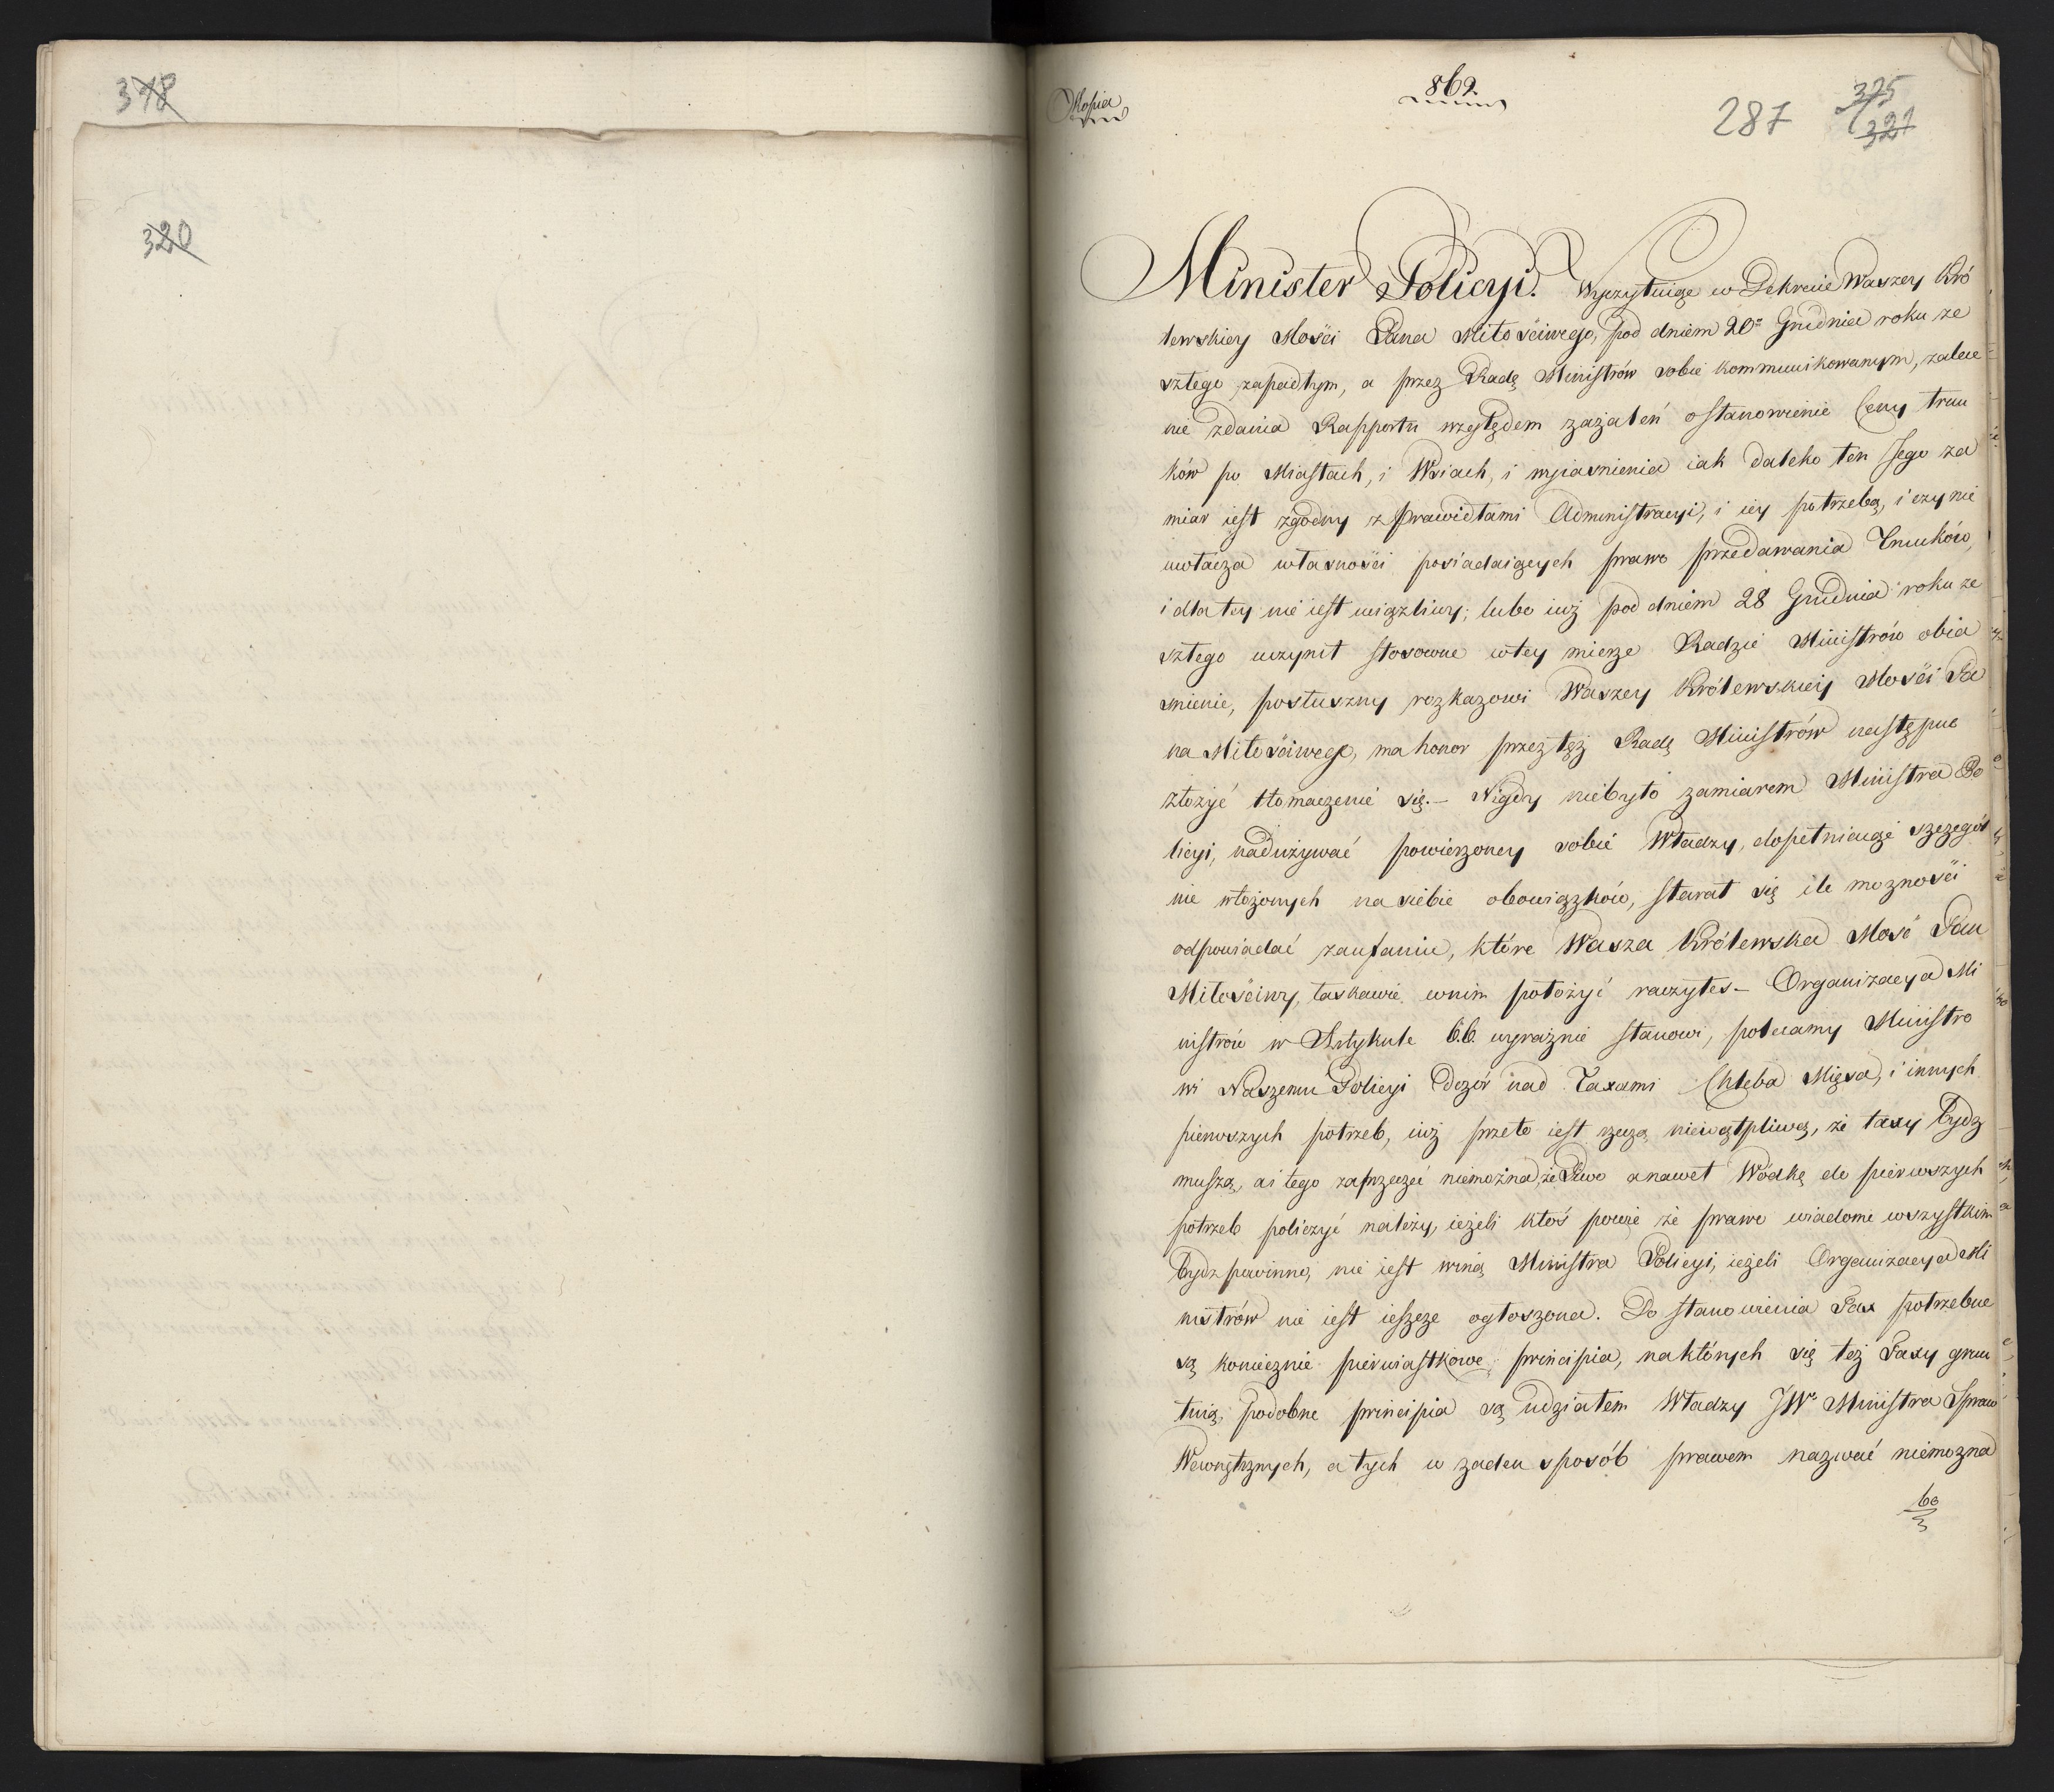 378
320
Kopia
862
287
325
321
Minister Policyi. Wyczytuiąc w Dekrecie Waszey Kró
lewskiey Mości Pana Miłościwego, pod dniem 20º Grudnia roku ze
szłego zapadłym, a przez Radę Ministrów sobie kommunikowanym, zalece
nie zdania Rapportu względem zażaleń o stanowienie Ceny trun
ków po Miastach, i Wsiach, i wyiaśnienia iak daleko ten Jego za
miar iest zgodny z prawidłami Administracyi, i iey potrzebą, i czy nie
uwłacza własności posiadaiących prawo przedawania Trunków,
i dla tey nie iest uciążliwy; lubo iuż pod dniem 28 Grudnia roku ze
szłego uczynił stosowne w tey mierze Radzie Ministrów obia
śnienie, posłuszny rozkazowi Waszey Królewskiey Mości Pa
na Miłościwego, ma honor przez tęż Radę Ministrów następne
złożyć tłomaczenie się.– Nigdy niebyło zamiarem Ministra Po
licyi, nadużywać powierzoney sobie Władzy, dopełniaiąc szczegól
nie włożonych na siebie obowiązków, starał się ile możności
odpowiadać zaufaniu, które Wasza Królewska Mość Pan
Miłościwy, łaskawie w nim położyć raczyłeś– Organizacya Mi
nistrów w Artykule 6.6. wyraźnie stanowi, polecamy Ministro
wi Naszemu Policyi Dozór nad Taxami Chleba Mięsa, i innych
pierwszych potrzeb, iuż przeto iest rzeczą niewątpliwą, że taxy bydz
muszą, a i tego zaprzeczeć niemożna, że Piwo a nawet Wódkę do pierwszych
potrzeb policzyć należy, ieżeli ktoś powie że prawo wiadome wszystkim
bydz powinno, nie iest winą Ministra Policyi, ieżeli Organizacya Mi
nistrów nie iest ieszcze ogłoszona. Do stanowienia Tax potrzebne
są koniecznie pierwiastkowe principia, na których się też Taxy grun
tuią, podobne principia są udziałem Władzy JW. Ministra Spraw
Wewnętrznych, a tych w żaden sposób prawem nazwać niemożna
bo